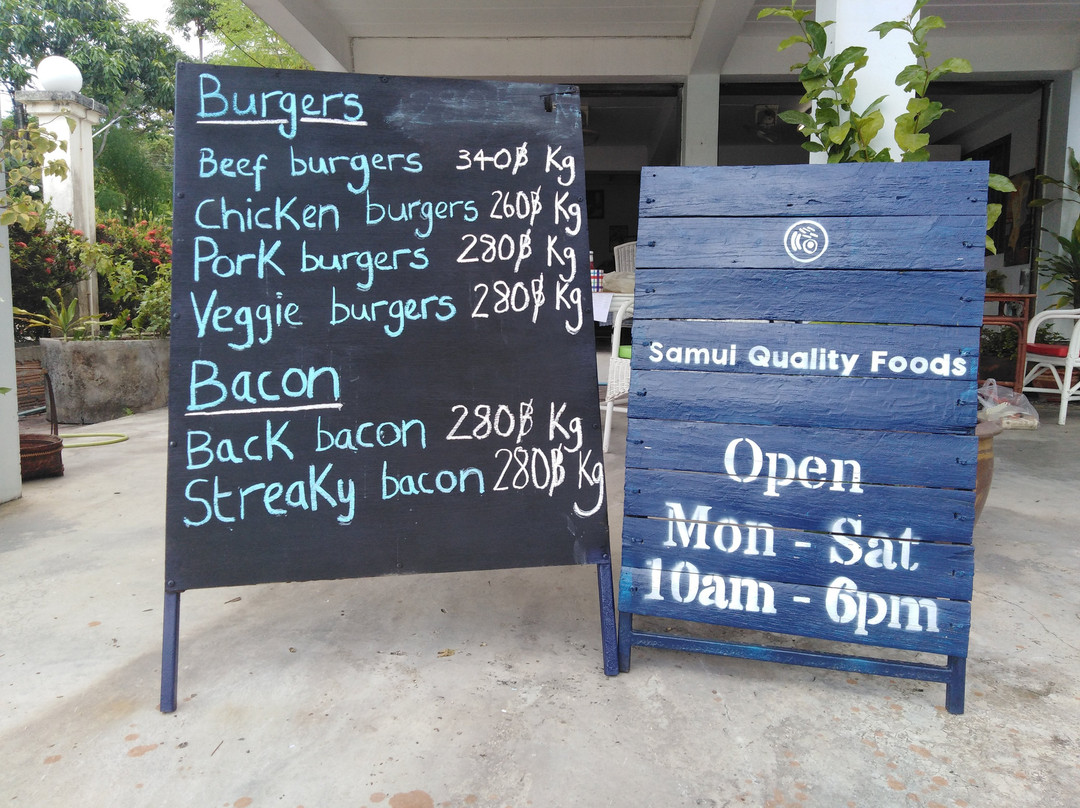 Burgers
Beef burgers 340฿ Kg
Chicken burgers 260฿ Kg
Pork burgers 280฿ Kg
Veggie burgers 280฿ Kg
Bacon
Back bacon 280฿ Kg
Streaky bacon 280฿ Kg
Samui Quality Foods
Open
Mon - Sat
10am - 6pm